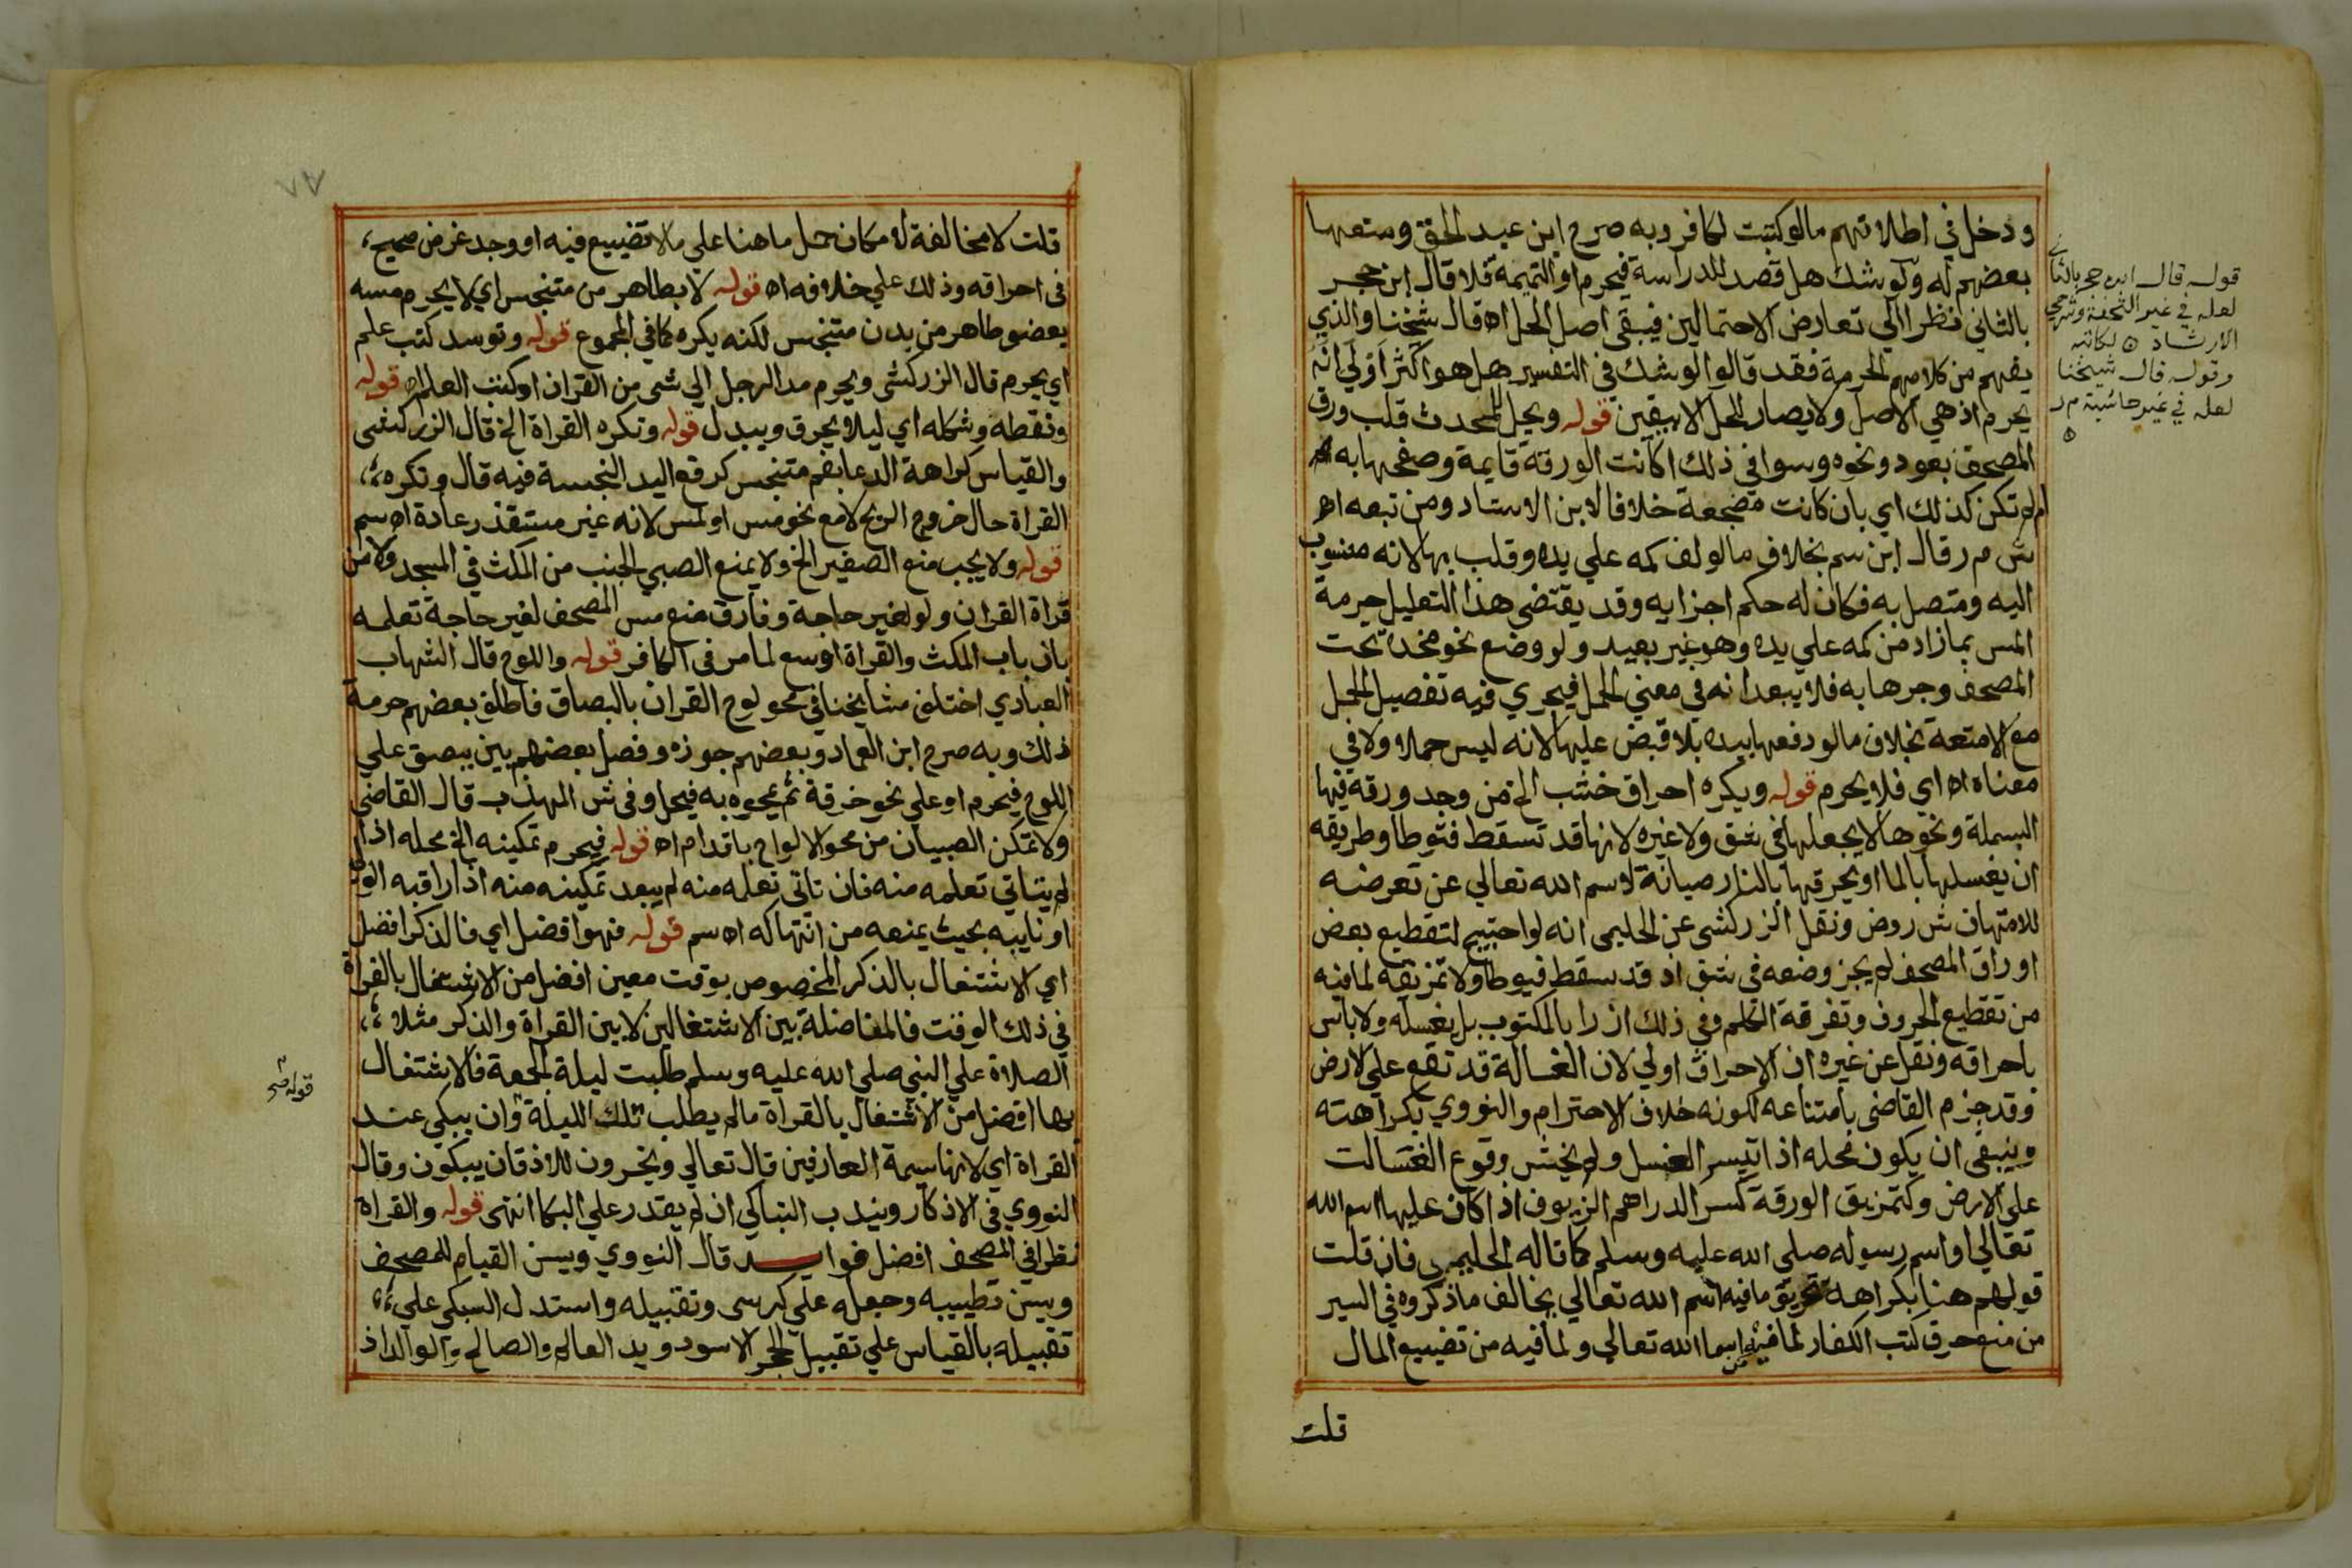 ودخل في اطلاقهم مالو كتبت لكافر وبه صرح ابن عبد الحق ومنعها
بعضهم له ولو شك هل قصد للدراسة فيحرم او التميمة فلا قال ابن حجر
بالثاني نظرا الي تعارض الاحتمالين فيبقي اصل الحل اه قال شيخنا والذي
يفهم من كلامهم الحرمة فقد قالوا لو شك في التفسير هل هو اكثر اولي انه
يحرم اذ هي الاصل ولا يصار للحل الا بيقين قوله ويحل للمحدث قلب ورق
المصحف بعود ونحوه وسوا في ذلك اكانت الورقة قايمة وصفحها به
ام لم تكن كذلك اي بان كانت مضجعة خلافا لابن الاستاد ومن تبعه اه
ش م ر قال ابن سم بخلاف مالو لف كمه علي يده وقلب بها لانه منسوب
اليه ومتصل به فكان له حكم اجزايه وقد يقتضي هذا التعليل حرمة
المس بما زاد من كمه علي يده وهو غير بعيد ولو وضع نحو مخدة تحت
المصحف وجرها به فلا يبعد انه في معني الحمل فيجري فيه تفصيل الحمل
مع الامتعة بخلاف مالو دفعها بيده بلا قبض عليها لانه ليس حملا ولا في
معناه اه اي فلا يحرم قوله ويكره احراق خشب الخ من وجد ورقة فيها
البسملة ونحوها لا يجعلها في شق ولا غيره لانها قد تسقط فتوطا وطريقه
ان يغسلها بالما او يحرقها بالنار صيانة لاسم الله تعالي عن تعرضه
للامتهان ش روض ونقل الزركشي عن الحليمي انه لو احتيج لتقطيع بعض
اوراق المصحف لم يجز وضعه في شق اذ قد يسقط فيوطا ولا تمزيقه لما فيه
من تقطيع الحروف وتفرقة الكلم وفي ذلك ازرا بالمكتوب بل يغسله ولا باس
باحراقه ونقل عن غيره ان الاحراق اولي لان الغسالة قد تقع علي الارض
وقد جزم القاضي بامتناعه لكونه خلاف الاحترام والنووي بكراهته
وينبغي ان يكون محله اذا تيسر الغسل ولم يخش وقوع الغسالت
علي الارض وكتمزيق الورقة كسر الدراهم الزيوف اذا كان عليها اسم الله
تعالي او اسم رسوله صلي الله عليه وسلم كما قاله الحليمي فان قلت
قولهم هنا بكراهة تحريق ما فيه اسم الله تعالي يخالف ما ذكروه في السير
من منع حرق كتب الكفار لما فيه من اسما الله تعالي ولما فيه من تضييع المال
قلت
قوله قال ابن حجر بالثاني
لعله في غير التحفة وشرحي
الارشاد ه لكاتبه
وقوله قال شيخنا
لعله في غير حاشية م ر
ه
٨٧
قلت لا مخالفة لامكان حمل ما هنا علي مالا تضييع فيه او وجد غرض صحيح
في احراقه وذلك علي خلافه اه قوله لا بطاهر من متنجس اي لا يحرم مسه
بعضو طاهر من بدن متنجس لكنه يكره كما في المجموع قوله وتوسد كتب علم
اي يحرم قال الزركشي ويحرم مد الرجل الي شي من القران او كتب العلم اه قوله
ونقطه وشكله اي ليلا يحرق ويبدل قوله وتكره القراة الخ قال الزركشي
والقياس كراهة الدعا بفم متنجس كرفع اليد النجسة فيه قال وتكره
القراة حال خروج الريح لا مع نحو مس او لمس لانه غير مستقذر عادة اه سم
قوله ولا يجب منع الصغير الخ ولا يمنع الصبي الجنب من المكث في المسجد ولا من
قراة القران ولو لغير حاجة وفارق منع مس المصحف لغير حاجة تعلمه
بان باب المكث والقراة اوسع لما مر في الكافر قوله واللوح قال الشهاب
العبادي اختلف مشايخنا في محو لوح القران بالبصاق فاطلق بعضهم حرمة
ذلك وبه صرح ابن العماد وبعضهم جوزه وفصل بعضهم بين يبصق علي
اللوح فيحرم او علي نحو خرقة ثم يمحوه به فيحل وفي ش المهذب قال القاضي
ولا تمكن الصبيان من محو الالواح باقدام اه قوله فيحرم تمكينه الخ محله اذا
لم يتاتي تعلمه منه فان تاتي تعلمه منه لم يبعد تمكينه منه اذا راقبه الولي
او نايبه بحيث يمنعه من انتهاكه اه سم قوله فهو افضل اي فالذكر افضل
اي الاشتغال بالذكر المخصوص بوقت معين افضل من الاشتغال بالقراة
في ذلك الوقت فالمفاضلة بين الاشتغالين لا بين القراة والذكر مثلا
الصلاة علي النبي صلي الله عليه وسلم طلبت ليلة الجمعة فالاشتغال
بها افضل من الاشتغال بالقراة مالم يطلب تلك الليلة وان يبكي عند
القراة اي لانها سيمة العارفين قال تعالي ويخرون للاذقان يبكون وقال
النووي في الاذكار ويندب التباكي ان لم يقدر علي البكا انتهي قوله والقراة
نظرا في المصحف افضل فوايد قال النووي ويسن القيام للمصحف
ويسن تطييبه وجعله علي كرسي وتقبيله واستدل السبكي علي
تقبيله بالقياس علي تقبيل الحجر الاسود ويد العالم والصالح والوالد اذ
قوله صح